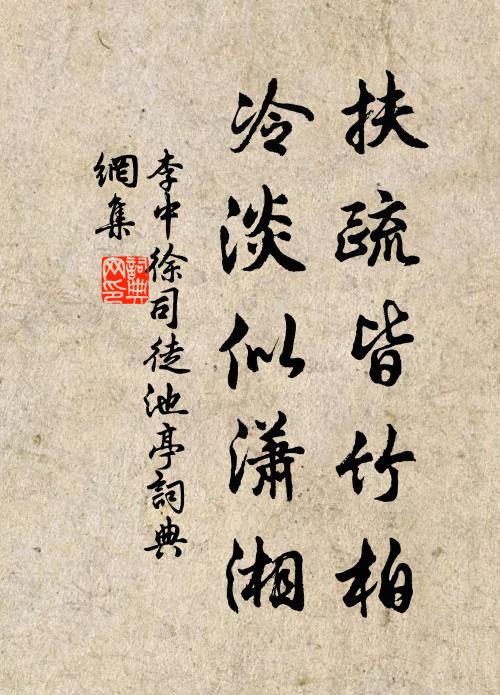 扶疏皆竹柏
冷淡似瀟湘
李中徐司徒池亭詞典
網集
詞典
网